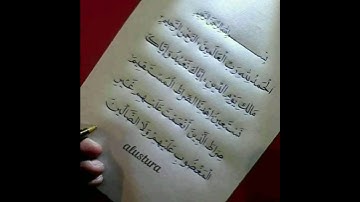 بسم الله الرحمن الرحيم
الحمد لله رب العالمين الرحمن الرحيم
مالك يوم الدين إياك نعبد وإياك
نستعين اهدنا الصراط المستقيم
صراط الذين أنعمت عليهم غير
المغضوب عليهم ولا الضالين
alustura